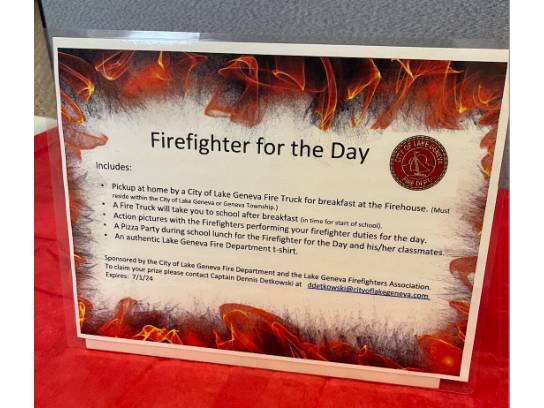 Firefighter for the Day
CITY OF LAKE GENEVA
FIRE DEPT.
Includes:
• Pickup at home by a City of Lake Geneva Fire Truck for breakfast at the Firehouse. (Must
reside within the City of Lake Geneva or Geneva Township.)
• A Fire Truck will take you to school after breakfast (in time for start of school).
• Action pictures with the Firefighters performing your firefighter duties for the day.
• A Pizza Party during school lunch for the Firefighter for the Day and his/her classmates.
• An authentic Lake Geneva Fire Department t-shirt.
Sponsored by the City of Lake Geneva Fire Department and the Lake Geneva Firefighters Association.
To claim your prize please contact Captain Dennis Detkowski at ddetkowski@cityoflakegeneva.com
Expires: 7/1/24